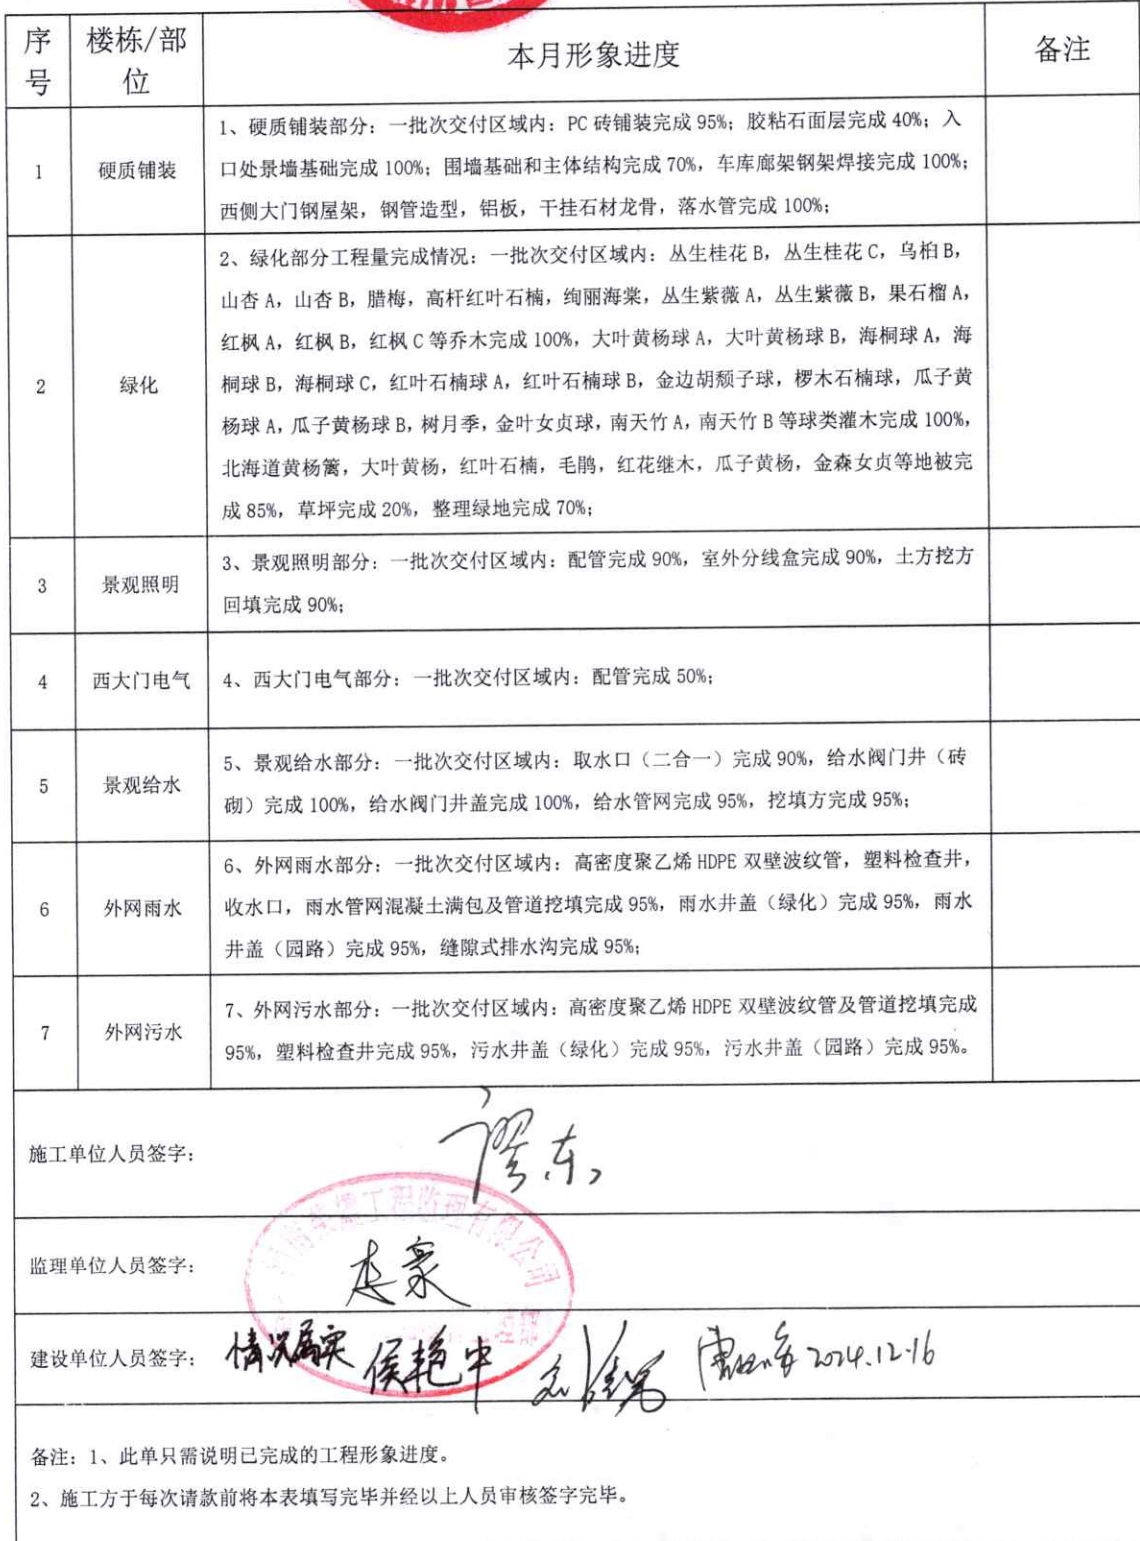 序号
楼栋/部位
本月形象进度
备注
1
硬质铺装
1、硬质铺装部分：一批次交付区域内：PC 砖铺装完成 95%；胶粘石面层完成 40%；入
口处景墙基础完成 100%；围墙基础和主体结构完成 70%，车库廊架钢架焊接完成 100%；
西侧大门钢屋架，钢管造型，铝板，干挂石材龙骨，落水管完成 100%；
2
绿化
2、绿化部分工程量完成情况：一批次交付区域内：丛生桂花 B，丛生桂花 C，乌桕 B，
山杏 A，山杏 B，腊梅，高杆红叶石楠，绚丽海棠，丛生紫薇 A，丛生紫薇 B，果石榴 A，
红枫 A，红枫 B，红枫 C 等乔木完成 100%，大叶黄杨球 A，大叶黄杨球 B，海桐球 A，海
桐球 B，海桐球 C，红叶石楠球 A，红叶石楠球 B，金边胡颓子球，椤木石楠球，瓜子黄
杨球 A，瓜子黄杨球 B，树月季，金叶女贞球，南天竹 A，南天竹 B 等球类灌木完成 100%，
北海道黄杨篱，大叶黄杨，红叶石楠，毛鹃，红花继木，瓜子黄杨，金森女贞等地被完
成 85%，草坪完成 20%，整理绿地完成 70%；
3
景观照明
3、景观照明部分：一批次交付区域内：配管完成 90%，室外分线盒完成 90%，土方挖方
回填完成 90%；
4
西大门电气
4、西大门电气部分：一批次交付区域内：配管完成 50%；
5
景观给水
5、景观给水部分：一批次交付区域内：取水口（二合一）完成 90%，给水阀门井（砖
砌）完成 100%，给水阀门井盖完成 100%，给水管网完成 95%，挖填方完成 95%；
6
外网雨水
6、外网雨水部分：一批次交付区域内：高密度聚乙烯 HDPE 双壁波纹管，塑料检查井，
收水口，雨水管网混凝土满包及管道挖填完成 95%，雨水井盖（绿化）完成 95%，雨水
井盖（园路）完成 95%，缝隙式排水沟完成 95%；
7
外网污水
7、外网污水部分：一批次交付区域内：高密度聚乙烯 HDPE 双壁波纹管及管道挖填完成
95%，塑料检查井完成 95%，污水井盖（绿化）完成 95%，污水井盖（园路）完成 95%。
施工单位人员签字：
工程监理有限公司
监理单位人员签字：
建设单位人员签字： 情况属实 侯艳中 2024.12.16
备注：1、此单只需说明已完成的工程形象进度。
2、施工方于每次请款前将本表填写完毕并经以上人员审核签字完毕。